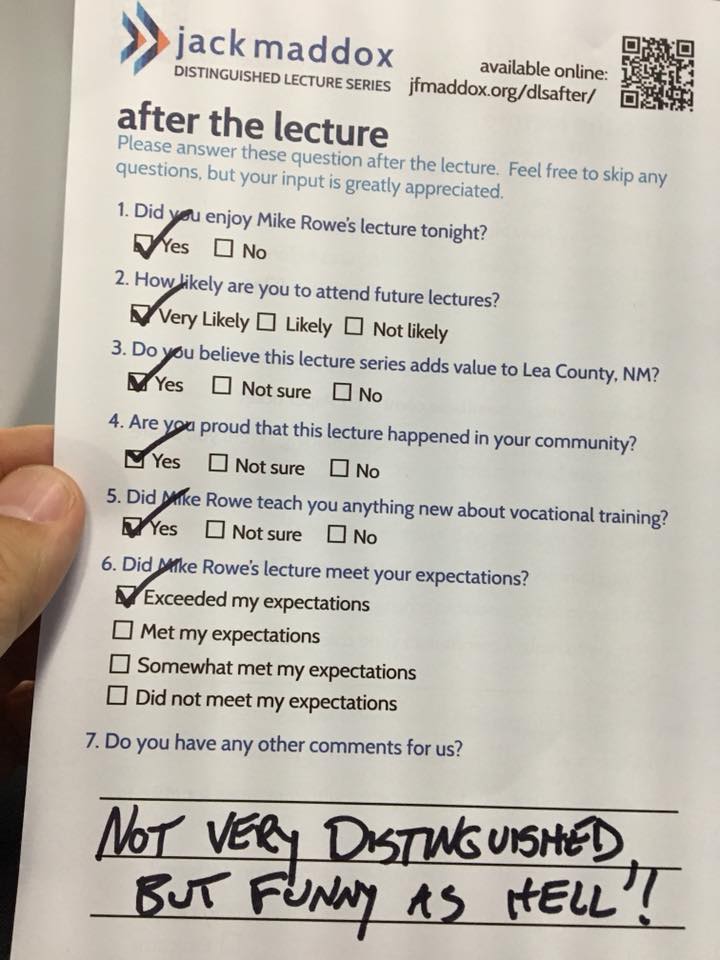 jack maddox
DISTINGUISHED LECTURE SERIES
available online:
jfmaddox.org/dlsafter/
after the lecture
Please answer these question after the lecture. Feel free to skip any
questions, but your input is greatly appreciated.
1. Did you enjoy Mike Rowe's lecture tonight?
Yes No
2. How likely are you to attend future lectures?
Very Likely Likely Not likely
3. Do you believe this lecture series adds value to Lea County, NM?
Yes Not sure No
4. Are you proud that this lecture happened in your community?
Yes Not sure No
5. Did Mike Rowe teach you anything new about vocational training?
Yes Not sure No
6. Did Mike Rowe's lecture meet your expectations?
Exceeded my expectations
Met my expectations
Somewhat met my expectations
Did not meet my expectations
7. Do you have any other comments for us?
NOT VERY DISTINGUISHED,
BUT FUNNY AS HELL"!